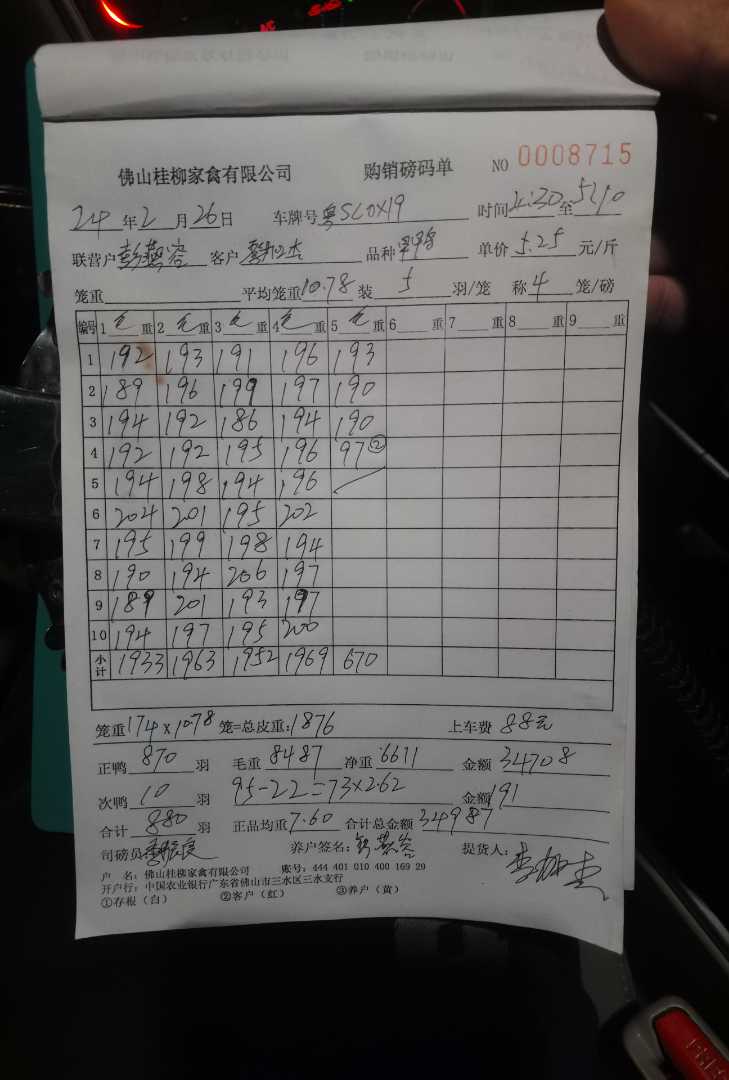 佛山桂柳家禽有限公司 购销磅码单 NO 0008715
24年2月26日 车牌号粤SL0X19 时间4:30至5:10
联营户彭燕容 客户 品种 单价5.25元/斤
笼重 平均笼重10.78装5羽/笼 称4笼/磅
编号 1毛重 2毛重 3毛重 4毛重 5毛重 6重 7重 8重 9重
1 192 193 191 196 193
2 189 196 199 197 190
3 194 192 186 194 190
4 192 192 195 196 97②
5 194 198 194 196
6 204 201 195 202
7 195 199 198 194
8 190 194 206 197
9 189 201 193 197
10 194 197 195 200
小计 1933 1963 1952 1969 670
笼重174x10.78笼=总皮重:1876 上车费88元
正鸭870羽 毛重8487净重:6611 金额34708
次鸭10羽 95-22=73x2.62 金额191
合计880羽 正品均重7.60 合计总金额34987
司磅员 养户签名: 提货人:
户 名:佛山桂柳家禽有限公司 账号:444 401 010 400 169 29
开户行:中国农业银行广东省佛山市三水区三水支行
①存根(白) ②客户(红) ③养户(黄)